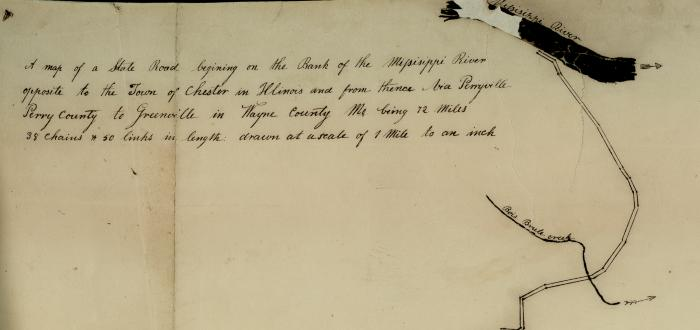 Missisippi River
A map of a State Road begining on the Bank of the Missisippi River
opposite to the Town of Chester in Illinois and from thence via Perryville
Perry County to Greenville in Wayne County Mo being 72 Miles
38 Chains & 50 links in length: drawn at a scale of 1 Mile to an inch
Bois Brule creek